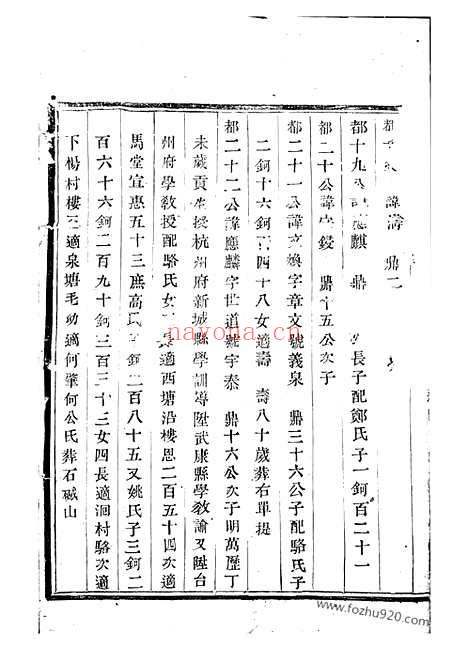 都 諱濤 鼎
都十九公諱應麒 鼎 公長子配鄭氏子一鈳百二十一
都二十公諱 錂 鼎十五公次子
都二十一公諱文煥字章文號義泉 鼎三十六公子配駱氏子
二鈳十六鈳百四十八女適壽 壽八十歲葬右單提
都二十二公諱應麟字世道雞字泰 鼎十六公次子明萬歷丁
未歲貢生授杭州府新城縣學訓導陞武康縣學教諭又陞台
州府學教授配駱氏女 適西塘沿樓恩二百五十四次適
馬堂宣惠五十三庶高氏 鈳二百八十五又姚氏子三鈳二
百六十六鈳二百九十鈳三百三十三女四長適洄村駱次適
下楊村樓三適泉塘毛幼適何肇何公氏葬石磁山
nayona.cn
www.fozhu920.com